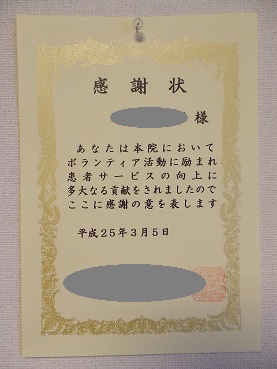 感謝状
様
あなたは本院において
ボランティア活動に励まれ
患者サービスの向上に
多大なる貢献をされましたので
ここに感謝の意を表します
平成25年3月5日